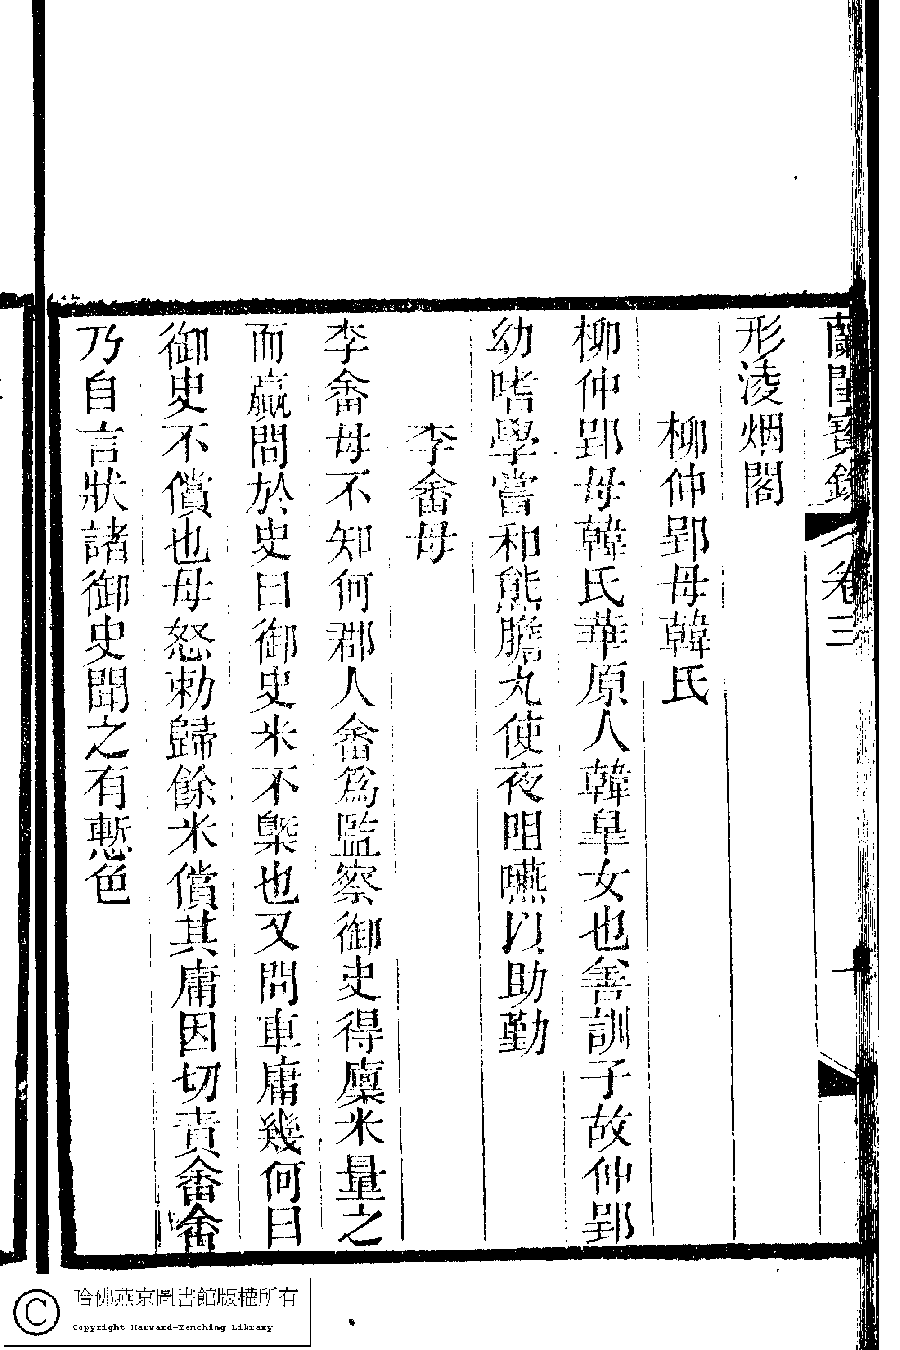 蘭閨寶錄 卷三 十
形淩烟閣
柳仲郢母韓氏
柳仲郢母韓氏華原人韓皐女也善訓子故仲郢
幼嗜學嘗和熊膽丸使夜咀嚥以助勤
李畬母
李畬母不知何郡人畬爲監察御史得廩米量之
而羸問於史曰御史米不槩也又問車庸幾何曰
御史不償也母怒勅歸餘米償其庸因切責畬畬
乃自言狀諸御史聞之有慙色
哈佛燕京圖書館版權所有
Copyright Harvard-Yenching Library